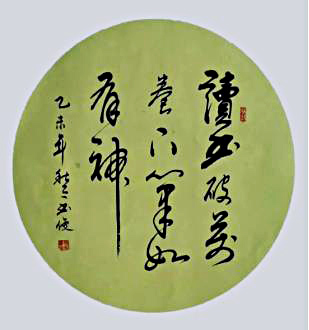 讀書破萬
卷下筆如
有神
乙未年秋書